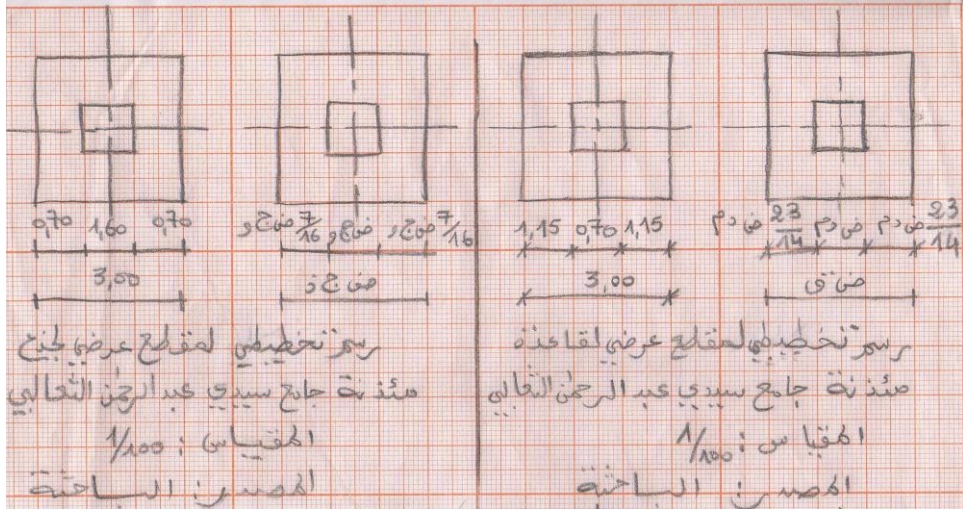 0,70 1,60 0,70
3,00
7/16 ض ج و ض ج و 7/16 ض ج و
ض ج و
رسم تخطيطي لمقطع عرضي لجذع
مئذنة جامع سيدي عبد الرحمن الثعالبي
المقياس: 1/100
المصدر: الباحثة
1,15 0,70 1,15
3,00
23/14 ض د م ض د م 23/14 ض د م
ض ق
رسم تخطيطي لمقطع عرضي لقاعدة
مئذنة جامع سيدي عبد الرحمن الثعالبي
المقياس: 1/100
المصدر: الباحثة